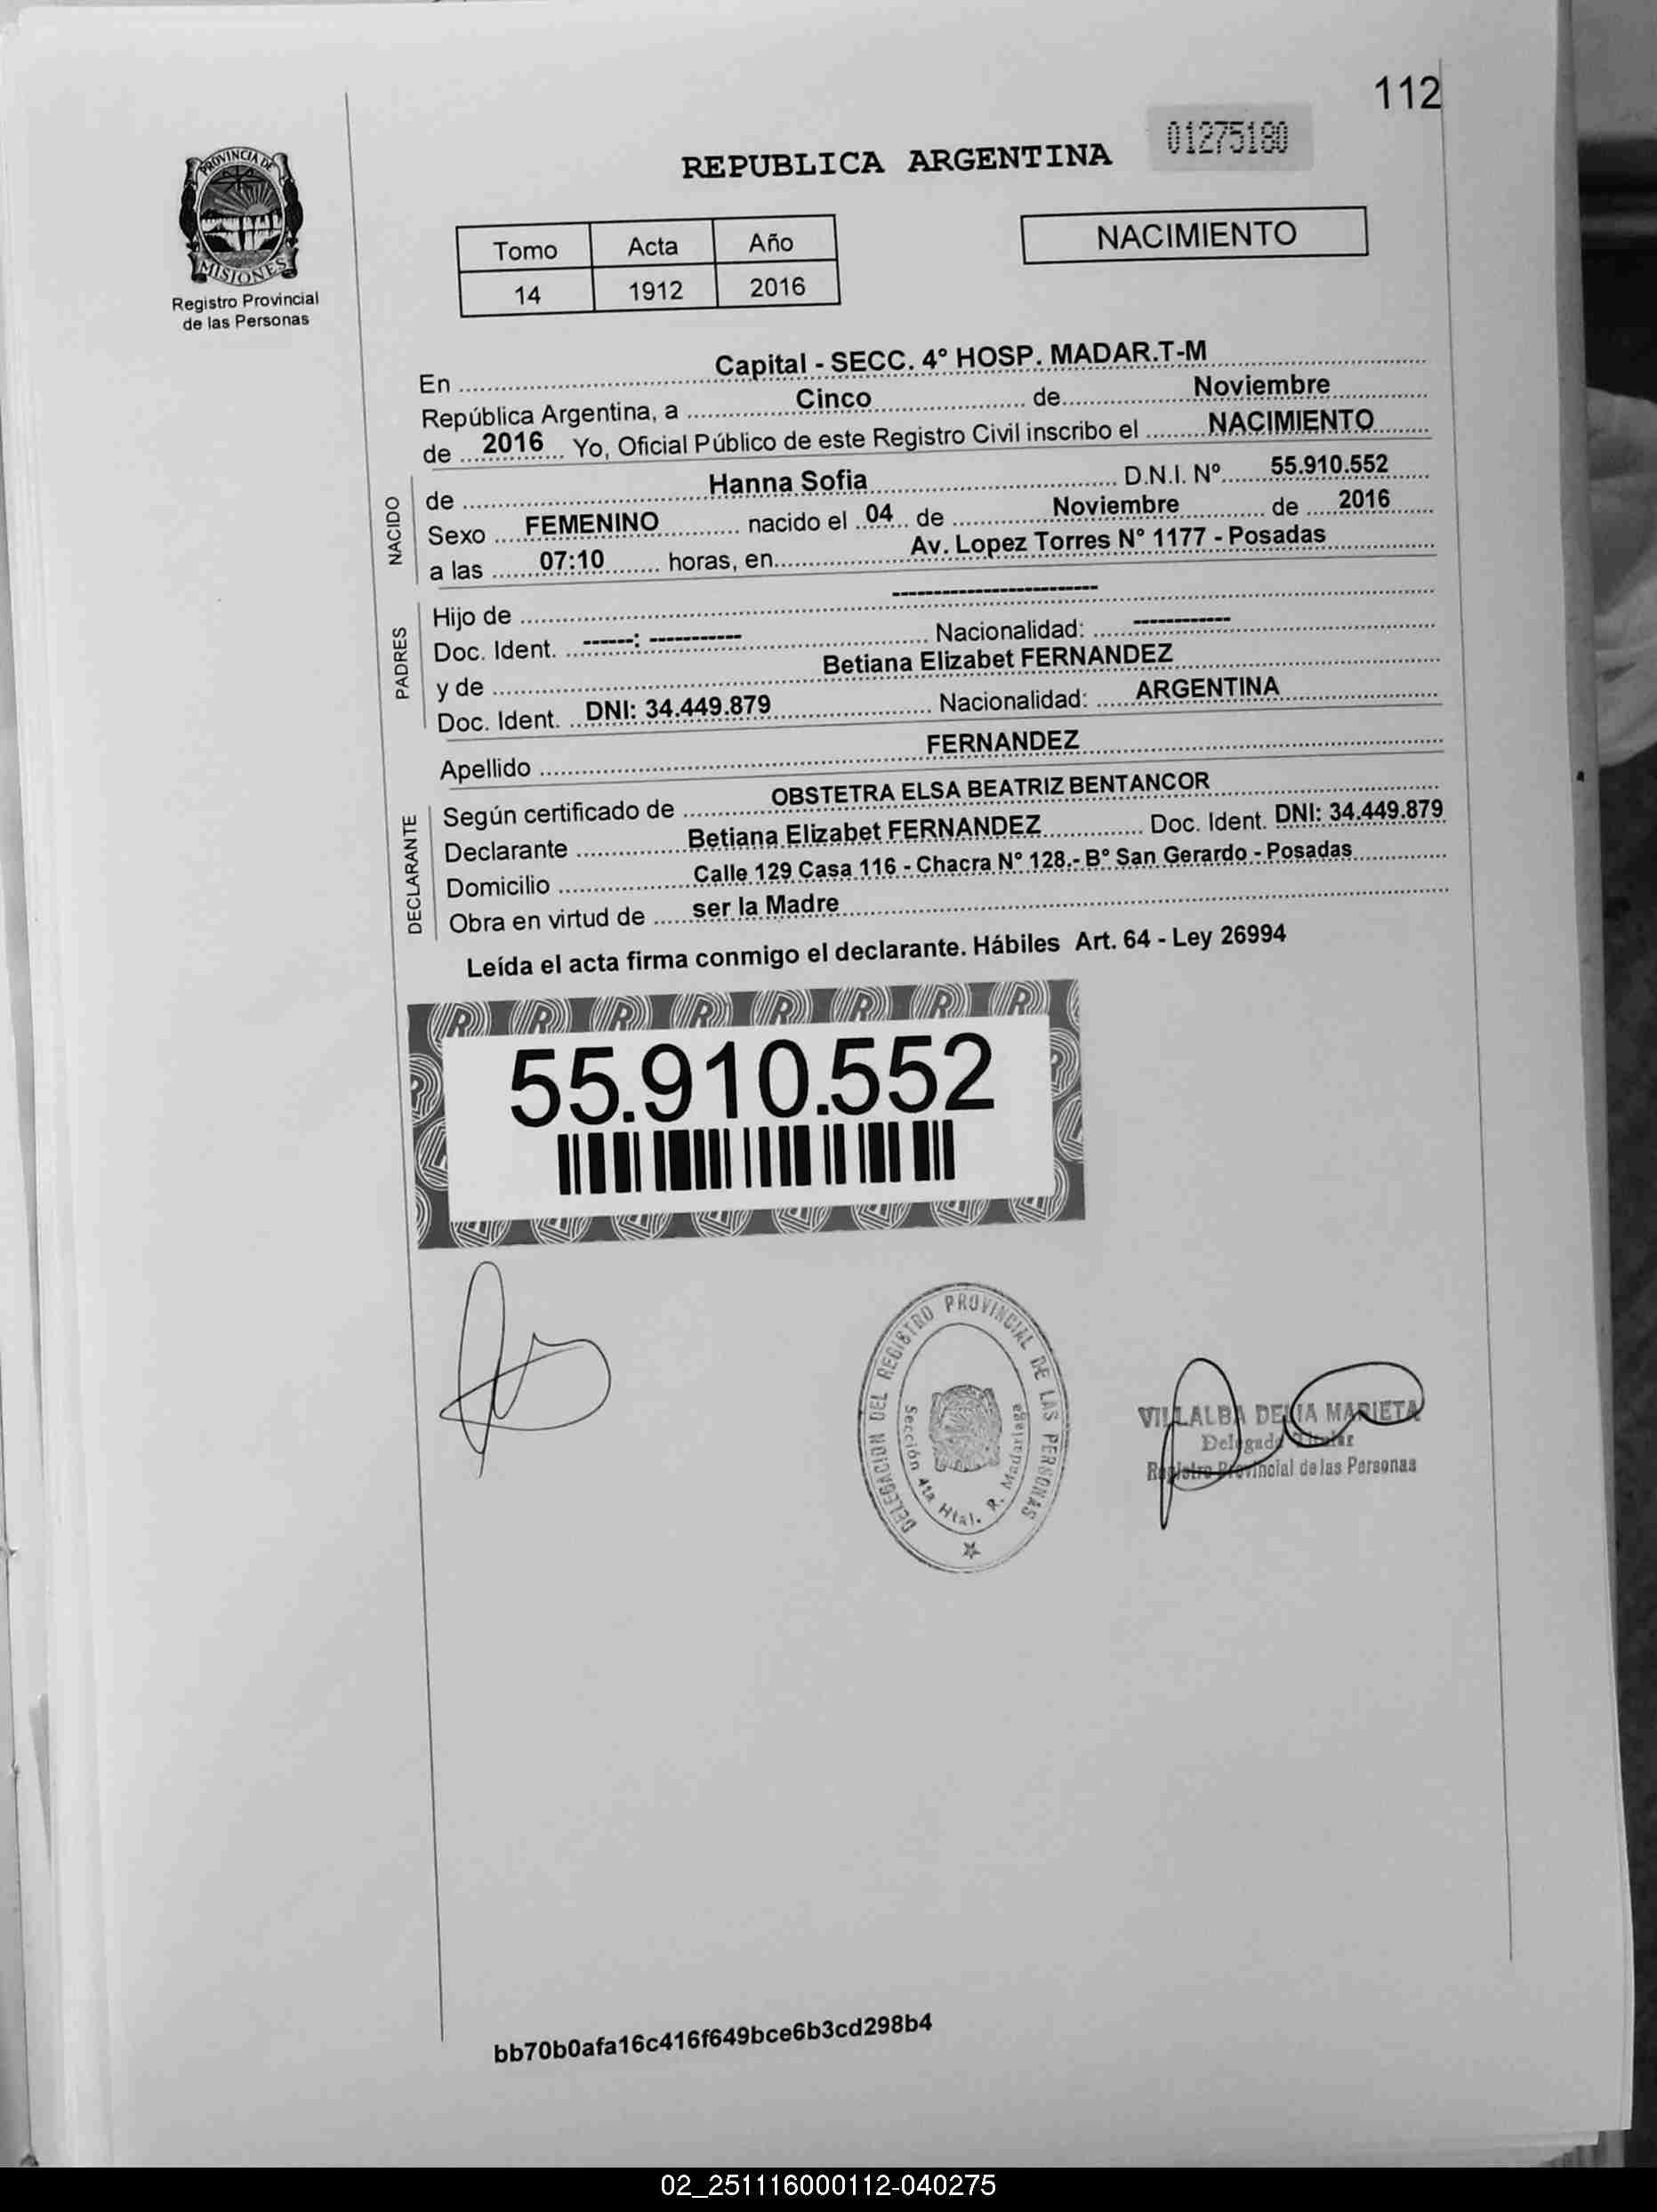 112
01275180
REPUBLICA ARGENTINA
PROVINCIA DE
MISIONES
Registro Provincial
de las Personas
Tomo Acta Año
14 1912 2016
NACIMIENTO
En Capital - SECC. 4° HOSP. MADAR.T-M
República Argentina, a Cinco de Noviembre
de 2016 Yo, Oficial Público de este Registro Civil inscribo el NACIMIENTO
NACIDO
de Hanna Sofia D.N.I. Nº 55.910.552
Sexo FEMENINO nacido el 04 de Noviembre de 2016
a las 07:10 horas, en Av. Lopez Torres N° 1177 - Posadas
PADRES
Hijo de ------------------------
Doc. Ident. ------: ----------- Nacionalidad: ------------
y de Betiana Elizabet FERNANDEZ
Doc. Ident. DNI: 34.449.879 Nacionalidad: ARGENTINA
Apellido FERNANDEZ
DECLARANTE
Según certificado de OBSTETRA ELSA BEATRIZ BENTANCOR
Declarante Betiana Elizabet FERNANDEZ Doc. Ident. DNI: 34.449.879
Domicilio Calle 129 Casa 116 - Chacra N° 128.- B° San Gerardo - Posadas
Obra en virtud de ser la Madre
Leída el acta firma conmigo el declarante. Hábiles Art. 64 - Ley 26994
55.910.552
DELEGACION DEL REGISTRO PROVINCIAL DE LAS PERSONAS
Sección 4ta Htal. R. Madariaga
VILLALBA DELIA MARIETA
Delegada Titular
Registro Provincial de las Personas
bb70b0afa16c416f649bce6b3cd298b4
02_251116000112-040275